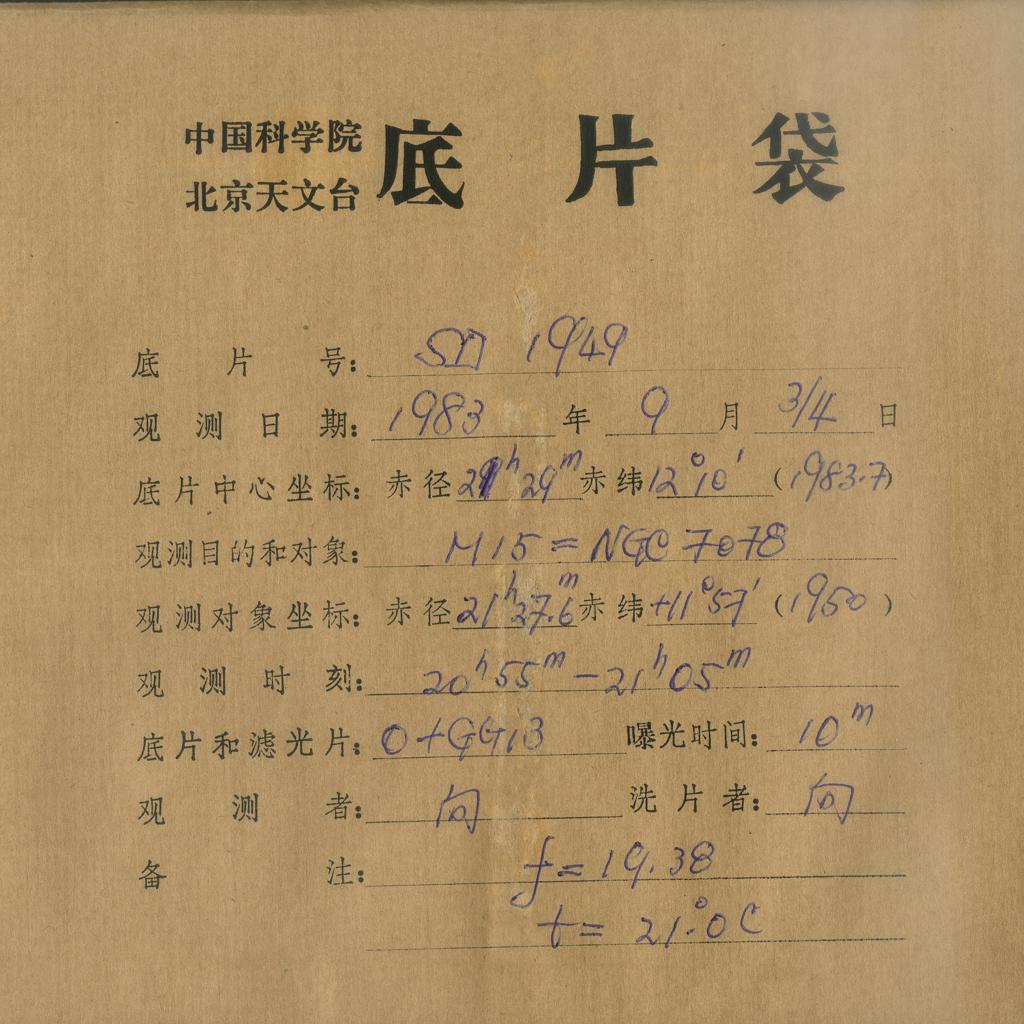 中国科学院
北京天文台
底片袋
底片号: SD 1949
观测日期: 1983 年 9 月 3/4 日
底片中心坐标: 赤径 21h 29m 赤纬 12°10′ (1983.7)
观测目的和对象: M15 = NGC 7078
观测对象坐标: 赤径 21h 27.6m 赤纬 +11°57′ (1950)
观测时刻: 20h55m - 21h05m
底片和滤光片: O+GG13 曝光时间: 10m
观测者: 向 洗片者: 向
备注: f = 19.38
t = 21.°0 C